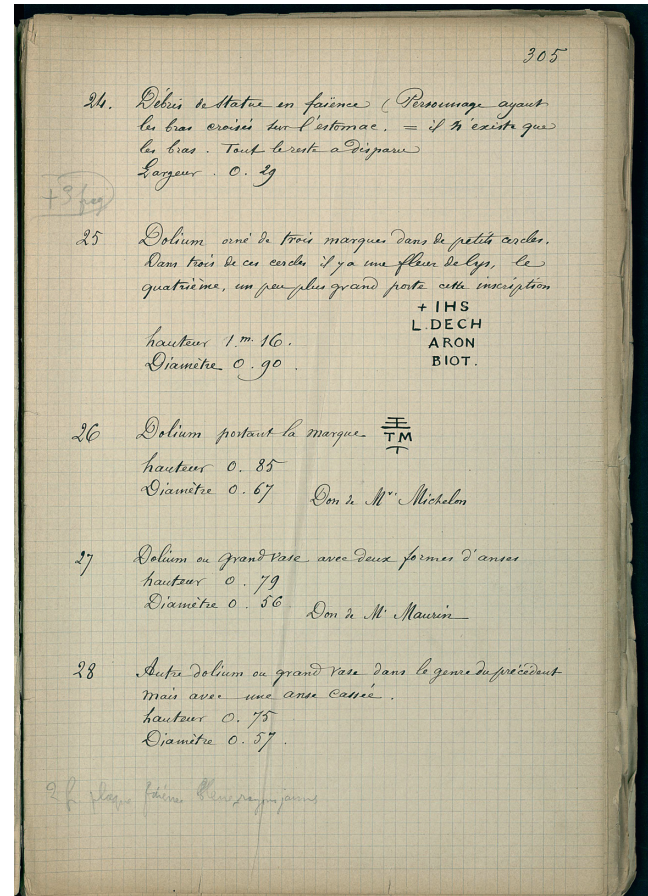 305
24. Débris de statue en faïence (Personnage ayant
les bras croisés sur l'estomac. = il n'existe que
les bras. Tout le reste a disparu
Largeur . 0. 29
+3
25 Dolium orné de trois marques dans de petits cercles.
Dans trois de ces cercles il y a une fleur de lys, le
quatrième, un peu plus grand porte cette inscription
+ IHS
L. DECH
ARON
BIOT.
hauteur 1.m. 16.
Diamètre 0. 90.
26 Dolium portant la marque TM
hauteur 0. 85
Diamètre 0. 67 Don de Mr. Michelon
27 Dolium ou grand vase avec deux formes d'anses
hauteur 0. 79
Diamètre 0. 56 Don de Mr Maurin
28 Autre dolium ou grand vase dans le genre du précédent
mais avec une anse cassée.
hauteur 0. 75
Diamètre 0. 57.
2